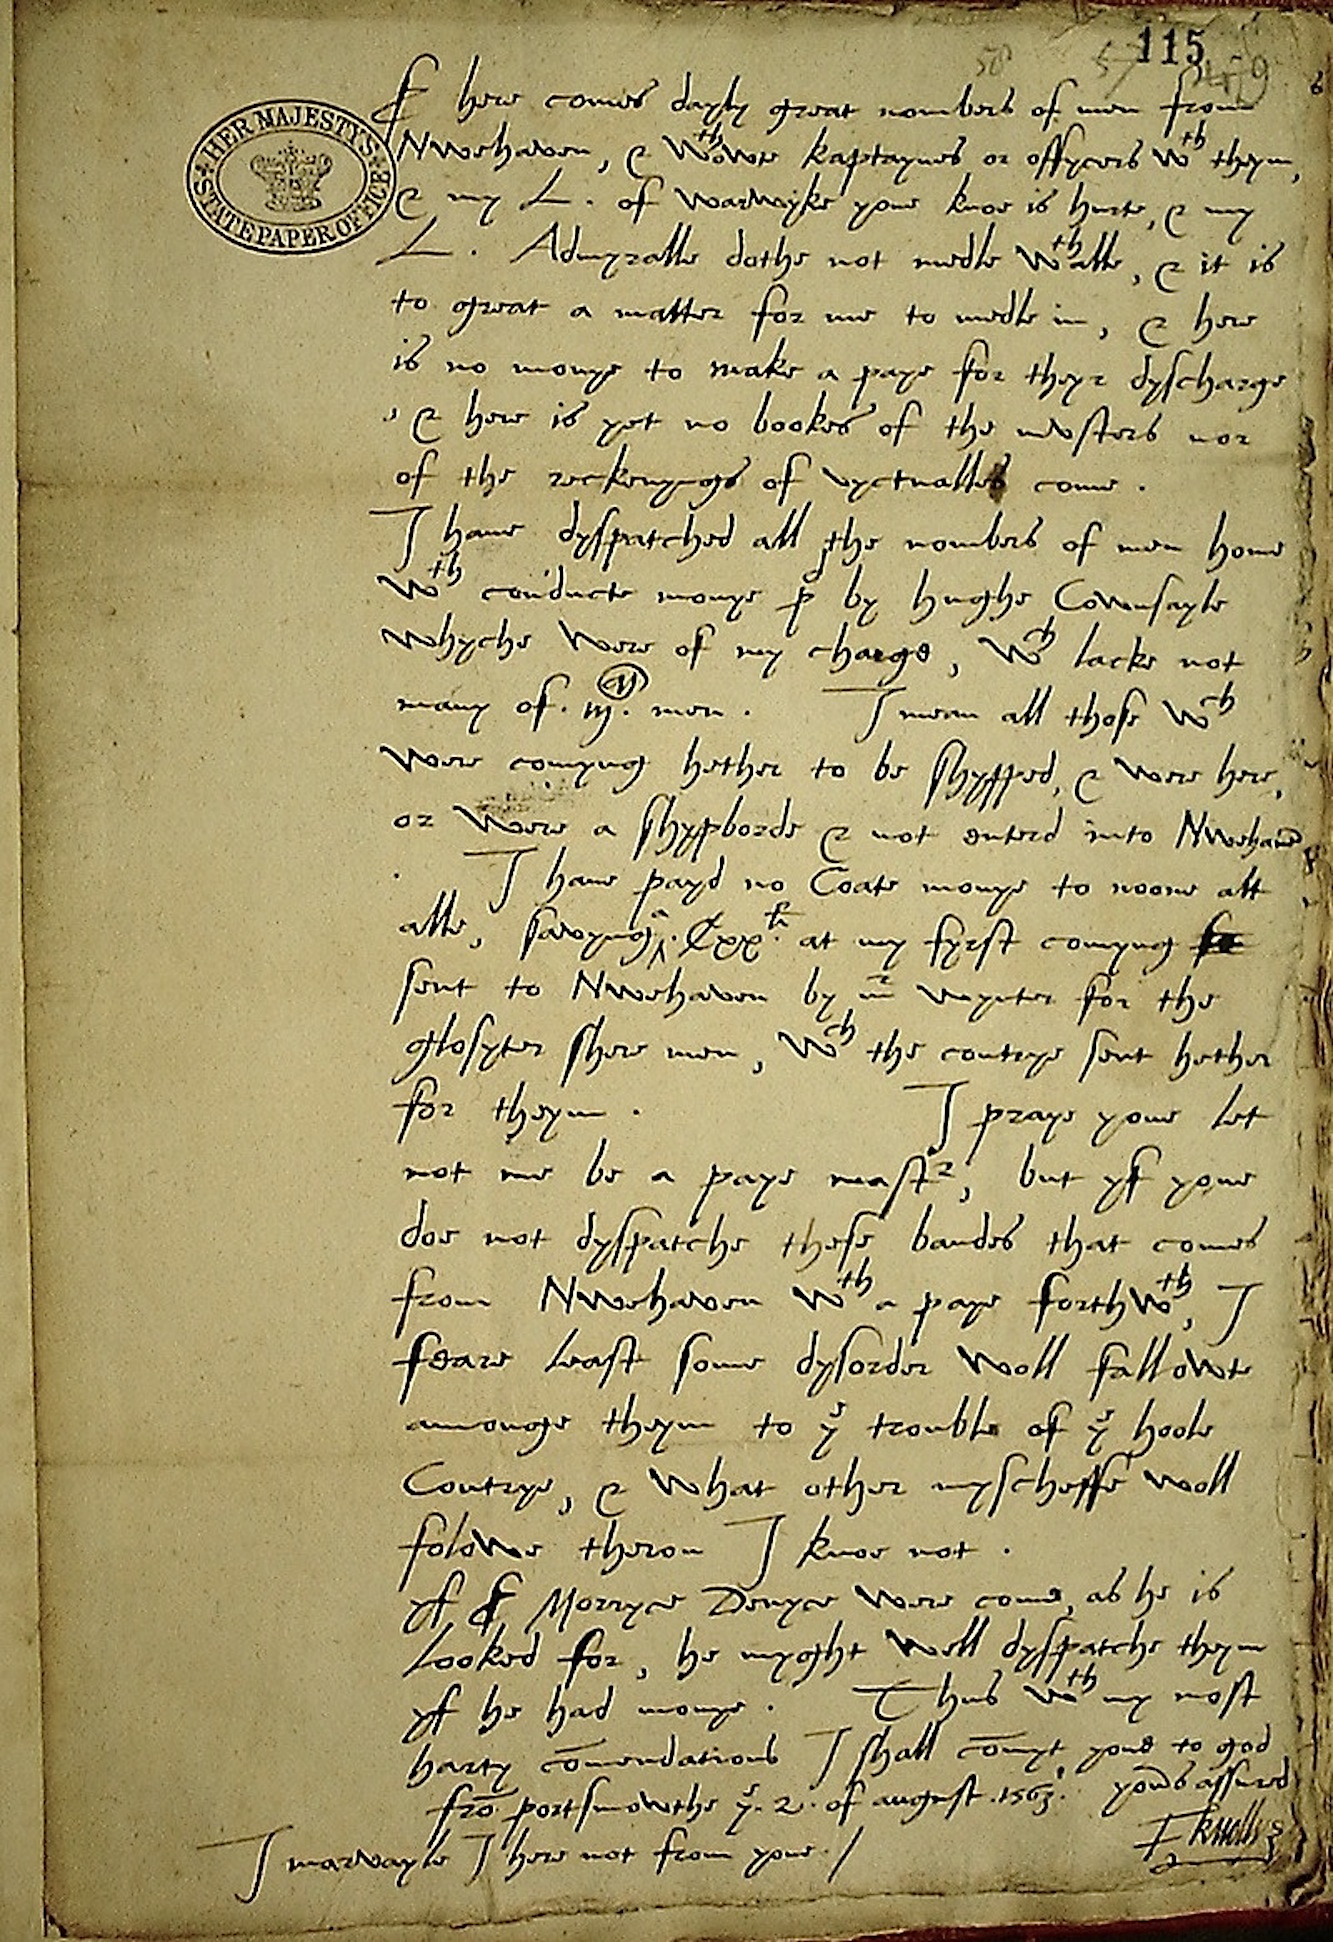 115
58 57
HER MAJESTY'S STATE PAPER OFFICE
S here comes dayly great nombers of men from
Nwehaven, & wthowte kaptaynes or offycers wth theym,
& my L. of warwyke youe knoe is hurte, & my
L. Admyralle dothe not medle wthalle, & it is
to great a matter for me to medle in, & here
is no monye to make a paye for theyr dyscharge
, & here is yet no bookes of the musters nor
of the reckenyngs of vyctualles come .
I have dyspatched all the nombers of men home
wth conducte monye p by hughe Cownsayle
whyche were of my charge, wch lacke not
many of . iij M . men . I mean all those wch
were comyng hether to be shypped, & were here,
or were a shypborde & not enterd into Nwehaven
. I have payd no Coate monye to noone att
alle, savyng a . Cxx li . at my fyrst comyng
sent to Nwehaven by mr wynter for the
glosyter shere men, wch the contrye sent hether
for theym . I praye youe let
not me be a paye mastr, but yf youe
doe not dyspatche these bandes that comes
from Nwehaven wth a paye forthwth, I
feare least some dysorder woll fallowte
amonge theym to ye trouble of ye hoole
Contrye, & what other myscheffe woll
folowe theron I knoe not .
yf S Morryce Denyce were come, as he is
looked for, he myght well dyspatche theym
yf he had monye . Thus wth my most
harty comendations I shall comyt youe to god
fro portsmowthe ye . 2 . of august . 1563 . yours assured
F knollys
I marvayle I here not from youe . /